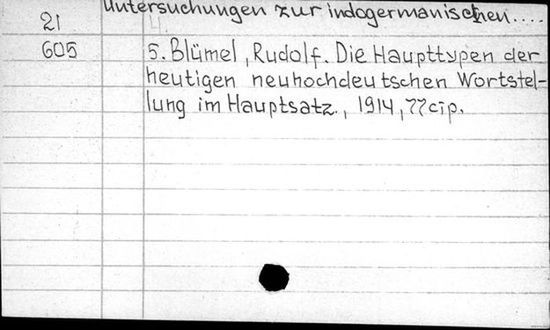 Untersuchungen zur indogermanischen....
21
605
5. Blümel, Rudolf. Die Haupttypen der
heutigen neuhochdeutschen Wortstel-
lung im Hauptsatz., 1914, 77 cip.